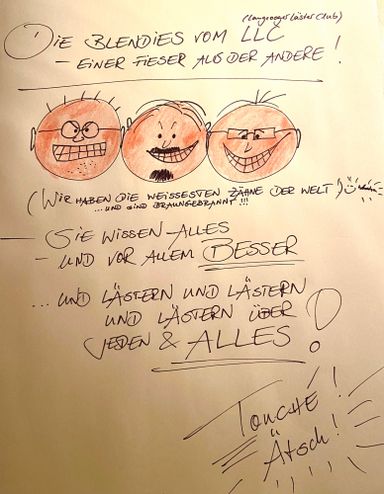 (Langeooger Läster Club)
DIE BLENDIES VOM LLC
– EINER FIESER ALS DER ANDERE!
(WIR HABEN DIE WEISSESTEN ZÄHNE DER WELT)
...UND SIND BRAUNGEBRANNT!!!
– SIE WISSEN ALLES
– UND VOR ALLEM BESSER
... UND LÄSTERN UND LÄSTERN
UND LÄSTERN ÜBER
JEDEN & ALLES!
TOUCHÉ!
Ätsch!